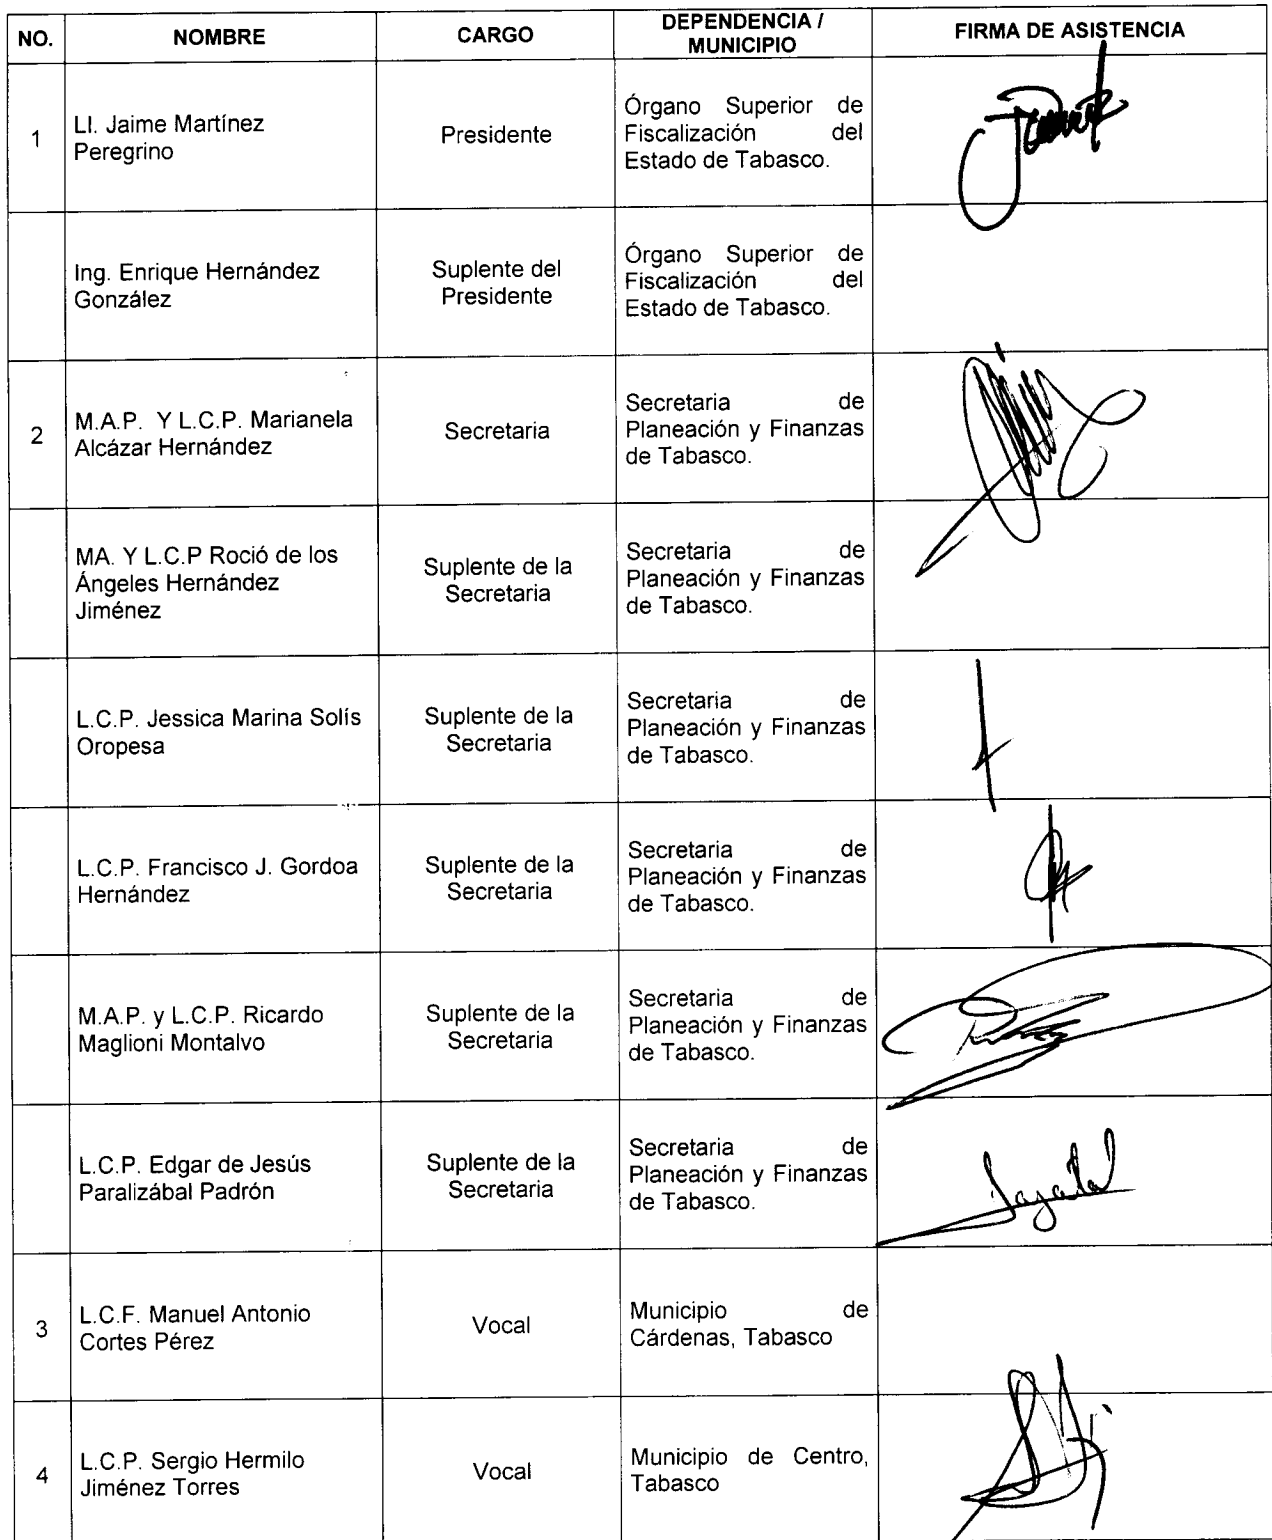 NO.
NOMBRE
CARGO
DEPENDENCIA /
MUNICIPIO
FIRMA DE ASISTENCIA
1
LI. Jaime Martínez
Peregrino
Presidente
Órgano Superior de
Fiscalización del
Estado de Tabasco.
Ing. Enrique Hernández
González
Suplente del
Presidente
Órgano Superior de
Fiscalización del
Estado de Tabasco.
2
M.A.P. Y L.C.P. Marianela
Alcázar Hernández
Secretaria
Secretaria de
Planeación y Finanzas
de Tabasco.
MA. Y L.C.P Roció de los
Ángeles Hernández
Jiménez
Suplente de la
Secretaria
Secretaria de
Planeación y Finanzas
de Tabasco.
L.C.P. Jessica Marina Solís
Oropesa
Suplente de la
Secretaria
Secretaria de
Planeación y Finanzas
de Tabasco.
L.C.P. Francisco J. Gordoa
Hernández
Suplente de la
Secretaria
Secretaria de
Planeación y Finanzas
de Tabasco.
M.A.P. y L.C.P. Ricardo
Maglioni Montalvo
Suplente de la
Secretaria
Secretaria de
Planeación y Finanzas
de Tabasco.
L.C.P. Edgar de Jesús
Paralizábal Padrón
Suplente de la
Secretaria
Secretaria de
Planeación y Finanzas
de Tabasco.
3
L.C.F. Manuel Antonio
Cortes Pérez
Vocal
Municipio de
Cárdenas, Tabasco
4
L.C.P. Sergio Hermilo
Jiménez Torres
Vocal
Municipio de Centro,
Tabasco